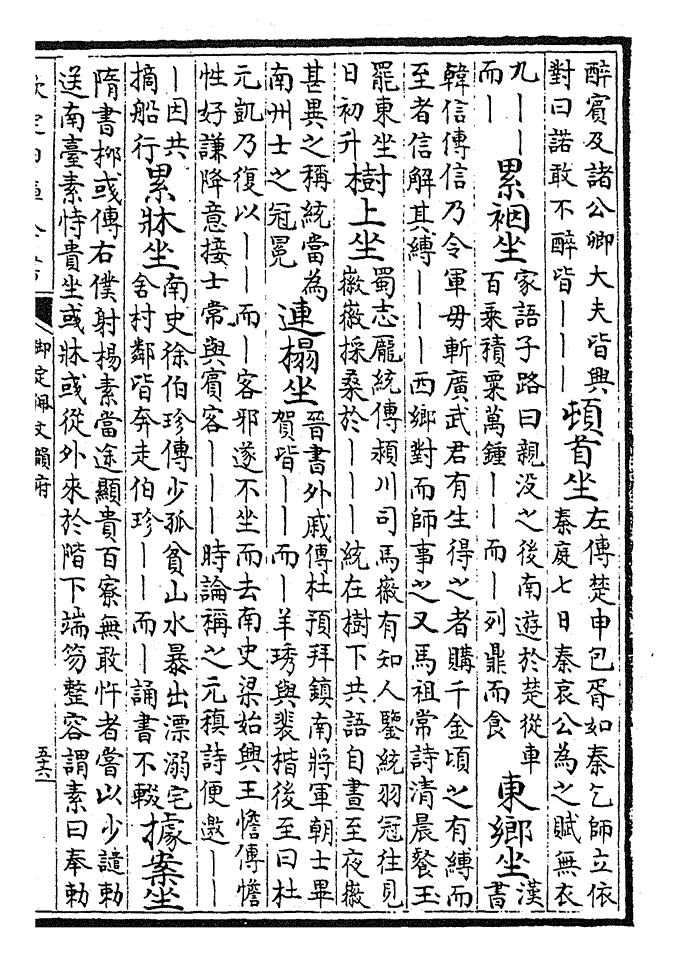 醉賓及諸公卿大夫皆興
對曰諾敢不醉皆｜｜｜
頓首坐
左傳楚申包胥如秦乞師立依
秦庭七日秦哀公為之賦無衣
九｜｜
而｜
累裀坐
家語子路曰親没之後南遊於楚從車
百乘積粟萬鍾｜｜而｜列鼎而食
東鄉坐
漢
書
韓信傳信乃令軍毋斬廣武君有生得之者購千金頃之有縛而
至者信解其縛｜｜｜西鄉對而師事之又馬祖常詩清晨餐玉
罷東坐
日初升
樹上坐
蜀志龐統傳潁川司馬徽有知人鑒統弱冠往見
徽徽採桑於｜｜｜統在樹下共語自晝至夜徽
甚異之稱統當為
南州士之冠冕
連榻坐
晉書外戚傳杜預拜鎮南將軍朝士畢
賀皆｜｜而｜羊琇與裴楷後至曰杜
元凱乃復以｜｜而｜客邪遂不坐而去南史梁始興王憺傳憺
性好謙降意接士常與賓客｜｜｜時論稱之元稹詩便邀｜｜
｜因共
摘船行
累牀坐
南史徐伯珍傳少孤貧山水暴出漂溺宅
舍村鄰皆奔走伯珍｜｜而｜誦書不輟
據案坐
隋書柳彧傳右僕射楊素當途顯貴百寮無敢忤者嘗以少譴勅
送南臺素恃貴坐彧牀彧從外來於階下端笏整容謂素曰奉勅
御定佩文韻府
五六